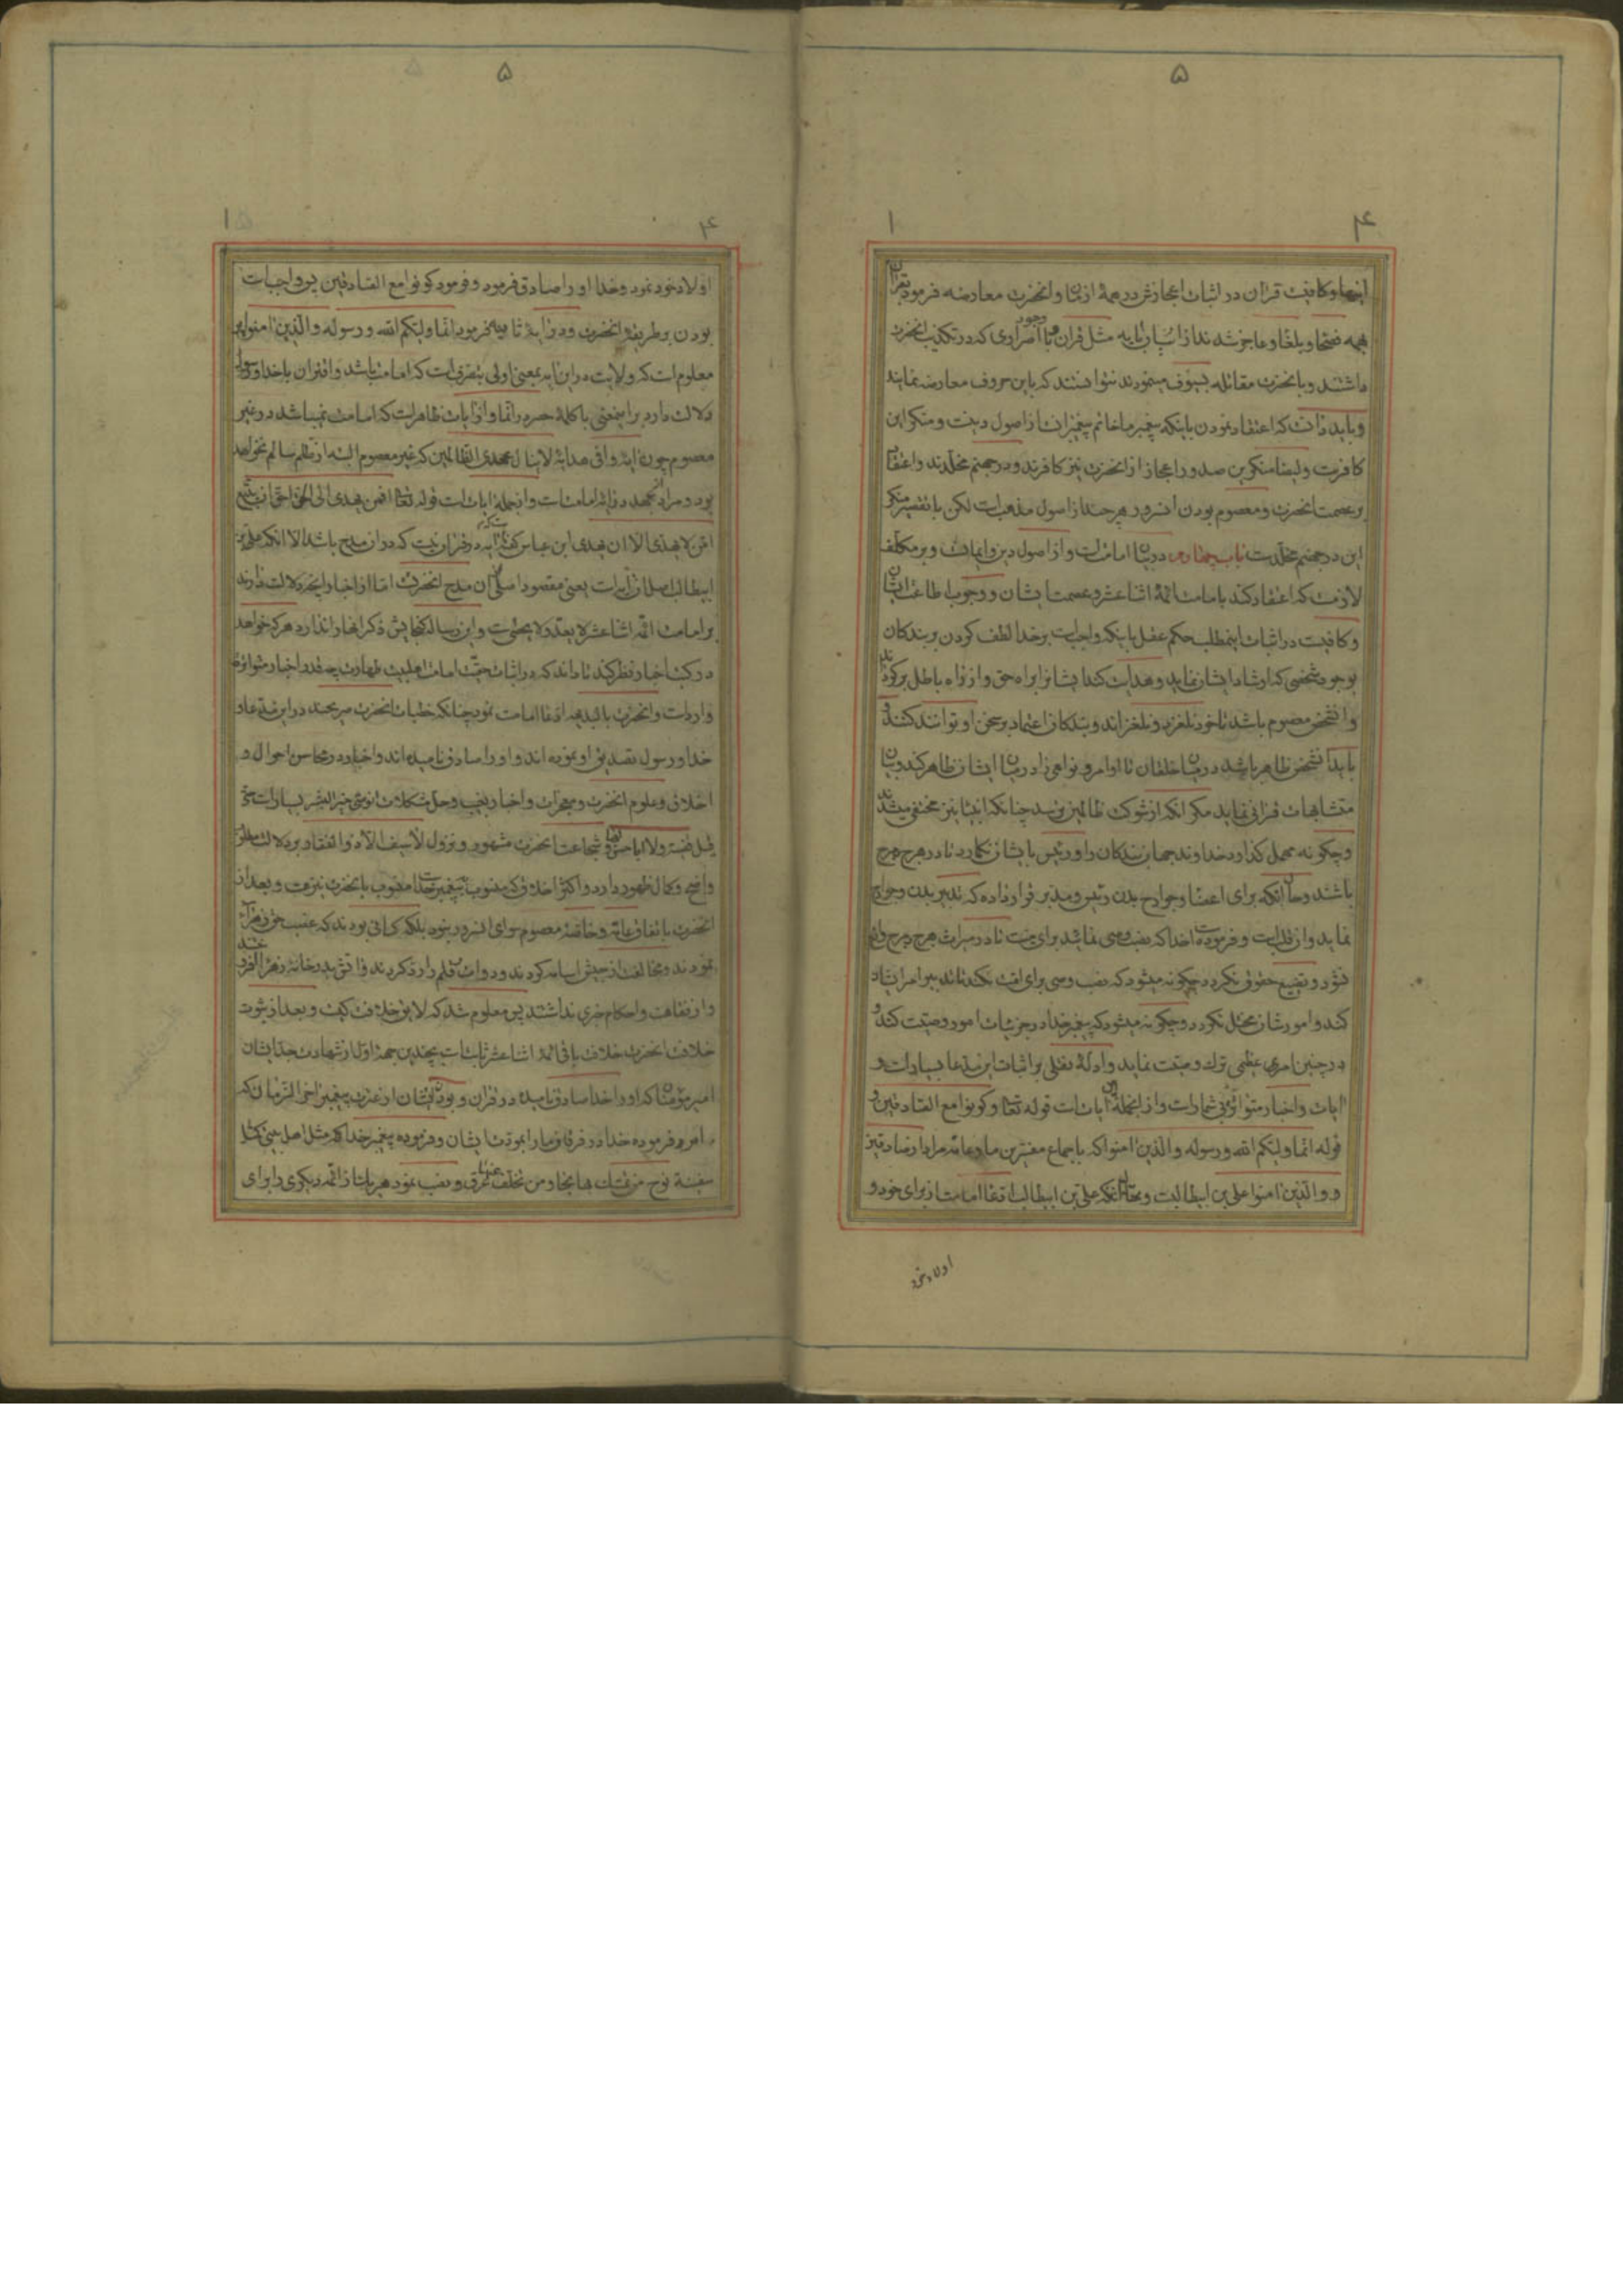 ۵
۴ ۱
و کافیست قرآن در اثبات اعجازش در همهٔ ازمان و آنحضرت معارضه فرمود بقرآن
همه فصحا و بلغا و عاجز شدند از اتیان بآیه مثل قرآن با وجود اصراری که در تکذیب آنحضرت
داشتند و با آنحضرت مقاتله بسیوف مینمودند نتوانستند که باین حروف معارضه نمایند
و باید دانست که اعتقاد نمودن باینکه پیغمبر ما خاتم پیغمبرانست از اصول دینست و منکر این
کافرست و ایضا منکرین صدور اعجاز از آنحضرت نیز کافرند و در جهنم مخلدند و اعتقاد
بر عصمت آنحضرت و معصوم بودن آنسرور هرچند از اصول مذهب است لکن با تقصیر منکر
این در جهنم مخلدست باب چهارم در بیان امامت است و از اصول دین و ایمانست و بر مکلف
لازمست که اعتقاد کند بامامت ائمهٔ اثنا عشر و عصمت ایشان و وجوب اطاعت ایشان
و کافیست در اثبات اینمطلب حکم عقل باینکه واجبست بر خدا لطف کردن بر بندکان
بوجود شخصی که ارشاد ایشان نماید و هدایت کند ایشانرا براه حق و از راه باطل برکرداند
و آنشخص معصوم باشد تا خود نلغزد و نلغزاند و بندکان اعتماد بر سخن او توانند کنند و
باید آنشخص ظاهر باشد در میان خلقان تا اوامر و نواهی را در میان ایشان ظاهر کند و بیان
متشابهات قرآنی نماید مکر آنکه از شوکت ظالمین بترسد چنانکه انبیا نیز مختفی میشدند
و چکونه مهمل کذارد خداوند جهان بندکان را و رئیس بایشان نکمارد تا در هرج مرج
باشند و حال آنکه برای اعضا و جوارح بدن رئیس و مدبر قرار داده که تدبیر بدن و جوارح
نماید و آن قلبست و فرموده است خدا که نصب وصی نمائید برای میت تا در میراث هرج و مرج واقع
نشود و تضییع حقوق نکردد چکونه میشود که نصب وصی برای امت نکند تا تدبیر امر ایشان
کند و امورشان مختل نکردد و چکونه میشود که پیغمبر خدا در جزئیات امور وصیت کند و
در چنین امری عظمی ترک وصیت نماید و ادلهٔ نقلی بر اثبات این مدعا بسیار است و
آیات و اخبار متواتره بی شمار است و از آنجملهٔ آیات است قوله تعالی و کونوا مع الصادقین و
قوله انما ولیکم الله و رسوله والذین آمنوا که باجماع مفسرین ما و عامه مراد از صادقین
و والذین آمنوا علی بن ابیطالبست و بتحقیق آنکه علی بن ابیطالب ادعا امامت از برای خود و
اولاد خود
۵
۴ ۱
اولاد خود نمود و خدا او را صادق فرمود و فرمود کونوا مع الصادقین پس واجبست
بودن بر طریقهٔ آنحضرت و در آیهٔ ثانیه فرمود انما ولیکم الله و رسوله والذین آمنوا پس
معلوم است که ولایت در این آیه بمعنی اولی بتصرف است که امامت باشد و اقتران با خدا و رسول
دلالت دارد بر اینمعنی با کلمهٔ حصر در انما و از آیات ظاهر است که امامت نمیباشد در غیر
معصوم چون آیهٔ وافی هدایهٔ لا ینال عهدی الظالمین که غیر معصوم البته از ظلم سالم نخواهد
بود و مراد از عهد در آیه امامت است و از جملهٔ آیات است قوله تعالی افمن یهدی الی الحق احق ان یتبع
امن لا یهدی الا ان یهدی ابن عباس گفته است که آیه در قرآن نیست که در آن مدح باشد الا آنکه علی بن
ابیطالب اصل آن آیه است یعنی مقصود اصلی آن مدح آنحضرتست اما از اخبار آنچه دلالت دارند
بر امامت ائمه اثنا عشر لا یعد و لا یحصی است و این رساله کنجایش ذکر آنها را ندارد هر که خواهد
در کتب اخبار نظر کند تا داند که در اثبات حقیت امامت اهلبیت طهارت چه قدر اخبار متواتره
وارد است و آنحضرت بالبدیهه ادعا امامت نمود چنانکه خطبات آنحضرت صریحند در این مدعا و
خدا و رسول تصدیق او نموده اند و او را صادق نامیده اند و اخبار در محاسن احوال و
اخلاق و علوم آنحضرت و معجزات و اخبار بغیب و حل مشکلات از وصی خیر البشر بسیار است حتی
قیل قضیة ولا ابا حسن لها و شجاعت آنحضرت مشهور و نزول لا سیف الا ذو الفقار بر دلالت مطلوب
واضح و کمال ظهور دارد و اکثر اخلاق که منسوب به پیغمبر خداست منسوب بآنحضرت نیز هست و بعد از
آنحضرت باتفاق عامه و خاصه معصوم سوای آنسرور نبود بلکه کسانی بودند که غصب حق زهرا
نمودند و مخالفت از جیش اسامه کردند و دوات و قلم را رد کردند و آتش بدر خانهٔ زهرا آوردند
و از فقاهت و احکام خبری نداشتند پس معلوم شد که لایق خلافت کیست و بعد از ثبوت
خلافت آنحضرت خلافت باقی ائمه اثنا عشر ثابتست بچندین جهة اول از شهادت جد ایشان
امیر مؤمنان که او را خدا صادق نامیده در قرآن و بودن ایشان از عترت پیغمبر آخر الزمان که
امر فرموده خدا در فرقان ما را بمودت ایشان و فرموده پیغمبر خدا که مثل اهل بیتی کمثل
سفینة نوح من تمسک بها نجا و من تخلف عنها غرق و نصب نمود هر یک از ائمه دیکری را برای